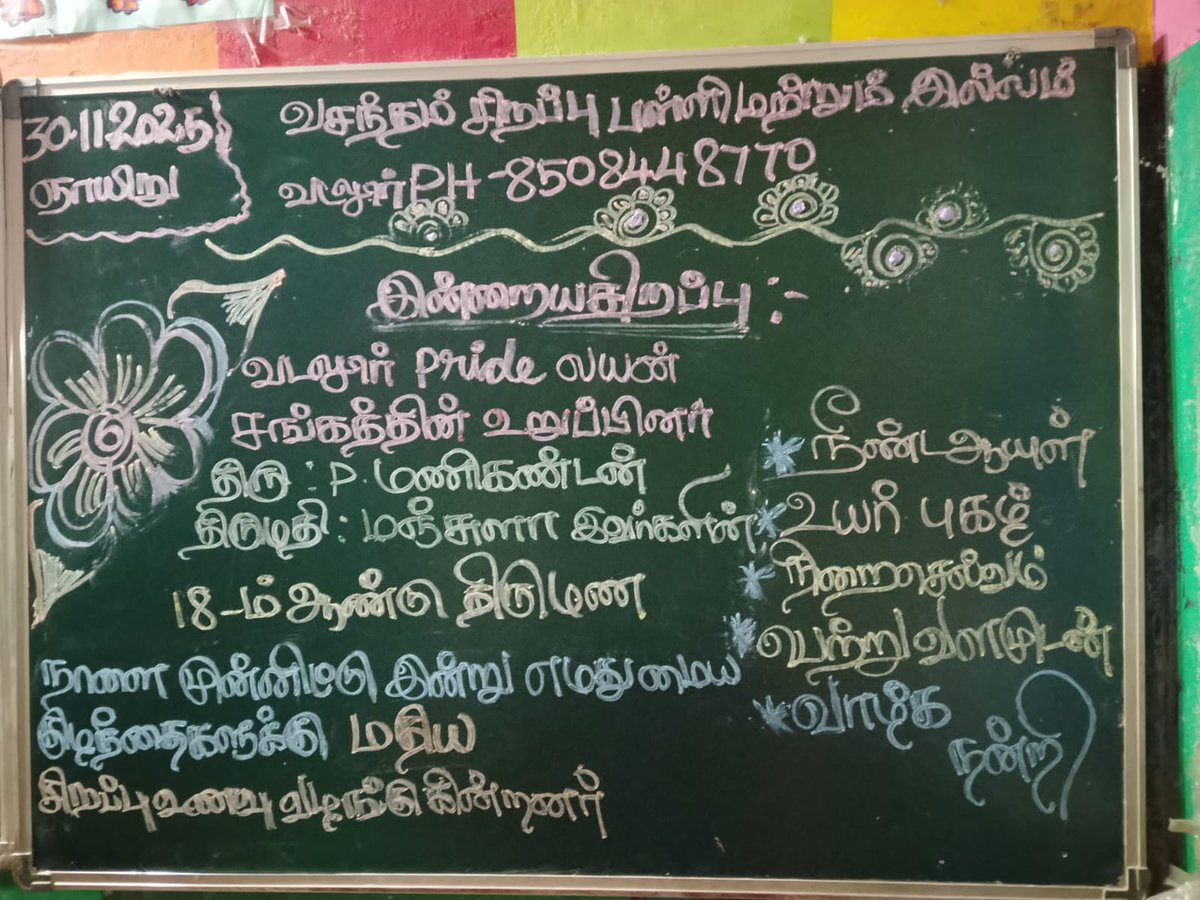 30.11.2025
ஞாயிறு
வசந்தம் சிறப்பு பள்ளி மற்றும் இல்லம்
வடலூர் PH -8508448770
இன்றையசிறப்பு :-
வடலூர் Pride லயன்
சங்கத்தின் உறுப்பினர்
திரு : P. மணிகண்டன்
திருமதி : மஞ்சுளா இவர்களின்
18-ம் ஆண்டு திருமண
நாளை முன்னிட்டு இன்று எமது மைய
குழந்தைகளுக்கு மதிய
சிறப்பு உணவு வழங்குகின்றனர்
* நீண்ட ஆயுள்
* உயர் புகழ்
* நிறைசெல்வம்
* பெற்று வளமுடன்
* வாழ்க
நன்றி